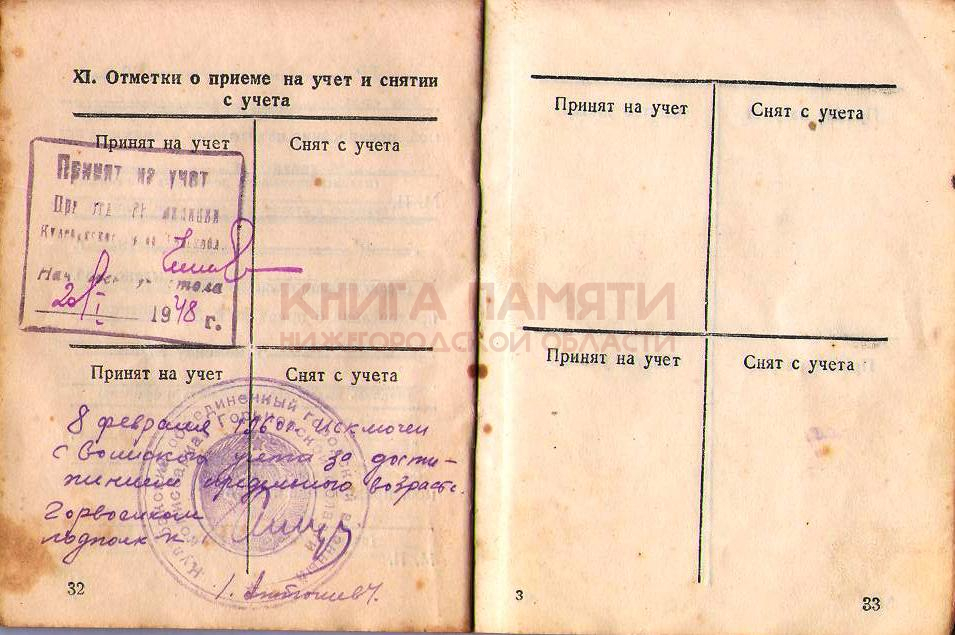 XI. Отметки о приеме на учет и снятии
с учета
Принят на учет
Снят с учета
Принят на учет
стола
20/I 1948 г.
Принят на учет
Снят с учета
8 февраля 1960г исключен
с воинского учета за дости-
жением предельного возраста.
Горвоенком
подполк-к
/. Антошев/.
32
Принят на учет
Снят с учета
Принят на учет
Снят с учета
3
33
КНИГА ПАМЯТИ
НИЖЕГОРОДСКОЙ ОБЛАСТИ